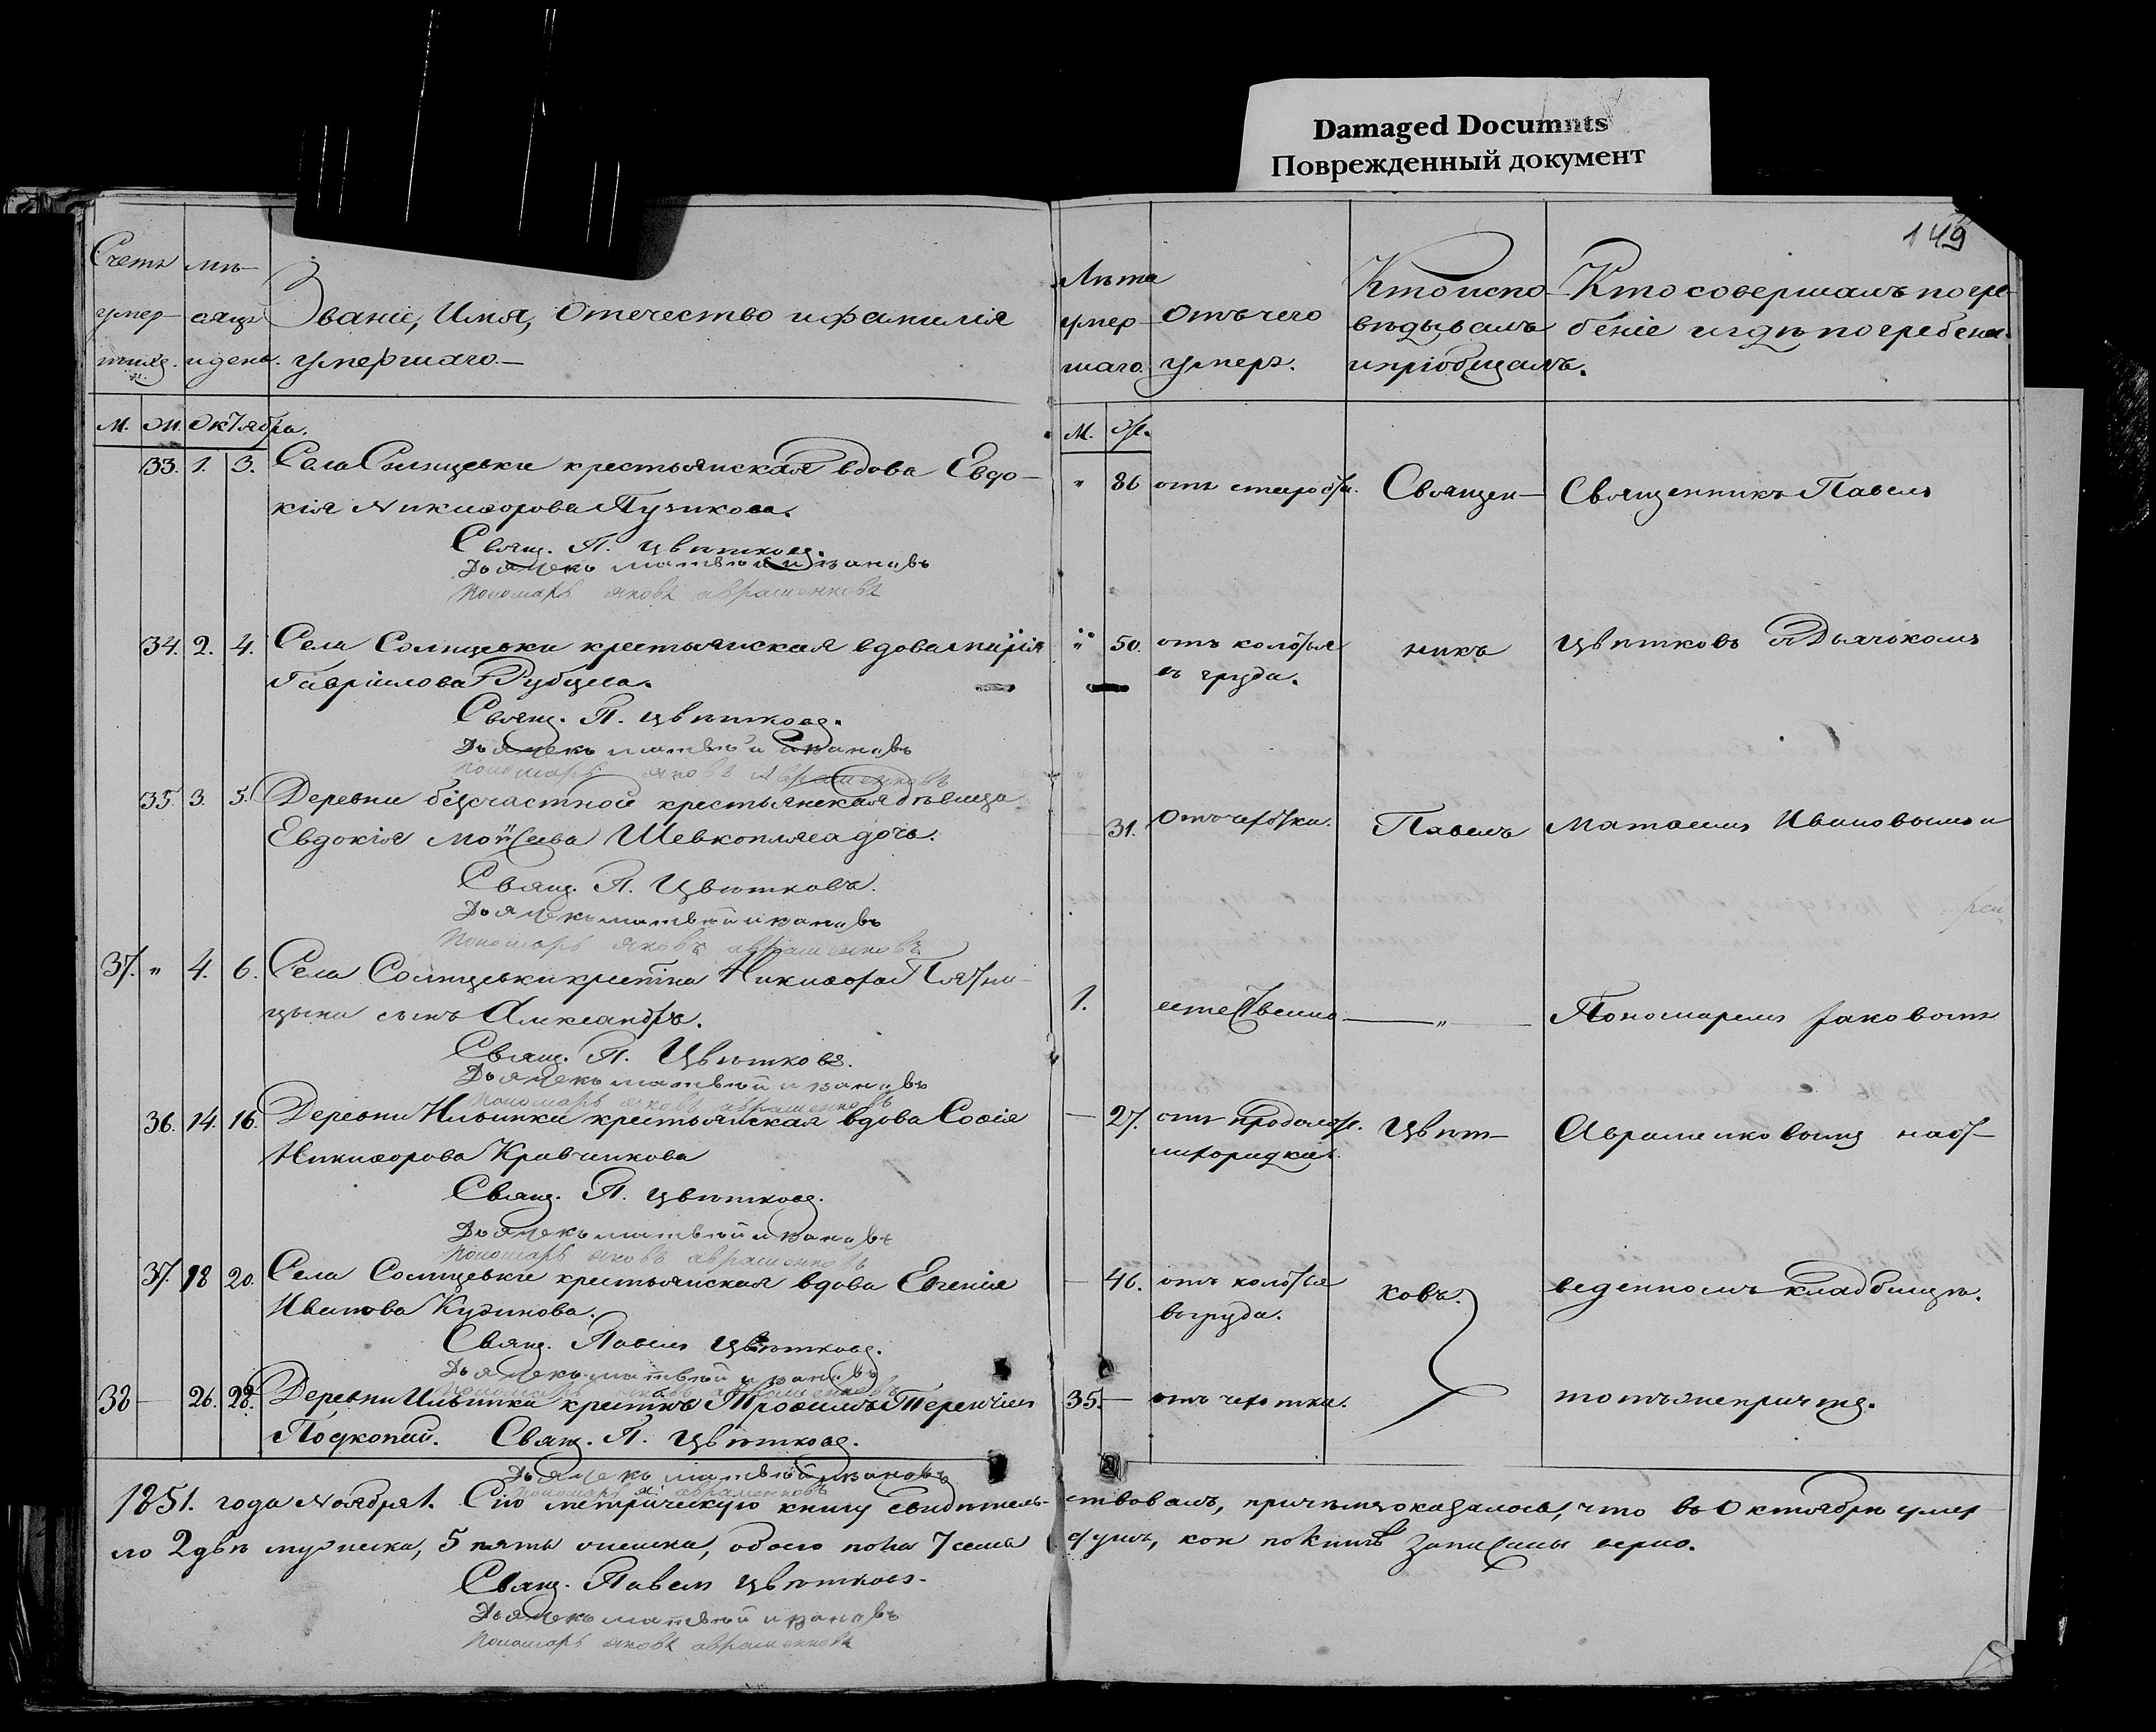 Damaged Documnts
Поврежденный документ
149
Счетъ
умер-
шихъ.
мѣ-
сяцъ
и день.
Званіе, Имя, Отечество и фамилія
умершаго.
Лѣта
умер-
шаго.
Отъ чего
умеръ.
Кто испо-
вѣдывалъ
и пріобщалъ.
Кто совершалъ погре-
беніе и гдѣ погребены.
М. Ж. Октября.
М. Ж.
33. 1. 3. Села Солнцевки крестьянская вдова Евдо-
кія Никифорова Пузикова.
Свящ. П. Цвѣтковъ.
Дьячекъ Матвѣй Ивановъ
Пономарь Яковъ Авраменковъ
" 86 отъ старости. Священ- Священникъ Павелъ
34. 2. 4. Села Солнцевки крестьянская вдова Марія
Гаврилова Рубцева.
Свящ. П. Цвѣтковъ.
Дьячекъ Матвѣй Ивановъ
Пономарь Яковъ Авраменковъ
" 50. отъ колотья
въ груди.
никъ Цвѣтковъ съ Дьячкомъ
35. 3. 5. Деревни безсчастной крестьянская дѣвица
Евдокія Моѵсеева Шевкопляса дочь.
Свящ. П. Цвѣтковъ.
Дьячекъ Матвѣй Ивановъ
Пономарь Яковъ Авраменковъ
31. Отъ чахотки. Павелъ Матвеемъ Ивановымъ и
37. " 4. 6. Села Солнцевки крестіна Никифора Пятни-
цына сынъ Александръ.
Свящ. П. Цвѣтковъ.
Дьячекъ Матвѣй Ивановъ
Пономарь Яковъ Авраменковъ
1. естественно — " — Пономаремъ Іаковомъ
36. 14. 16. Деревни Ильинки крестьянская вдова Софія
Никифорова Кравчикова
Свящ. П. Цвѣтковъ.
Дьячекъ Матвѣй Ивановъ
Пономарь Яковъ Авраменковъ
— 27. отъ продолж.
лихорадки.
Цвѣт- Авраменковымъ на от-
37. 18 20. Села Солнцевки крестьянская вдова Евгенія
Иванова Кузикова.
Свящ. Павелъ Цвѣтковъ.
Дьячекъ Матвѣй Ивановъ
Пономарь Яковъ Авраменковъ
— 46. отъ колотья
въ груди.
ковъ. веденномъ кладбищѣ.
38 — 26. 28. Деревни Ильинки крестнъ Трофимъ Терентіевъ
Подкопай. Свящ. П. Цвѣтковъ.
35. — отъ чахотки. тотъ же причтъ.
Дьячекъ Матвѣй Ивановъ
Пономарь Я. Авраменковъ
1851. года Ноября 1. Сію метрическую книгу свидѣтель- ствовалъ, причемъ оказалось, что въ Октябрѣ умер
ло 2 двѣ мужеска, 5 пять женска, обоего пола 7 семь душъ, кои по книгѣ записаны верно.
Свящ. Павелъ Цвѣтковъ.
Дьячекъ Матвѣй Ивановъ
Пономарь Яковъ Авраменковъ